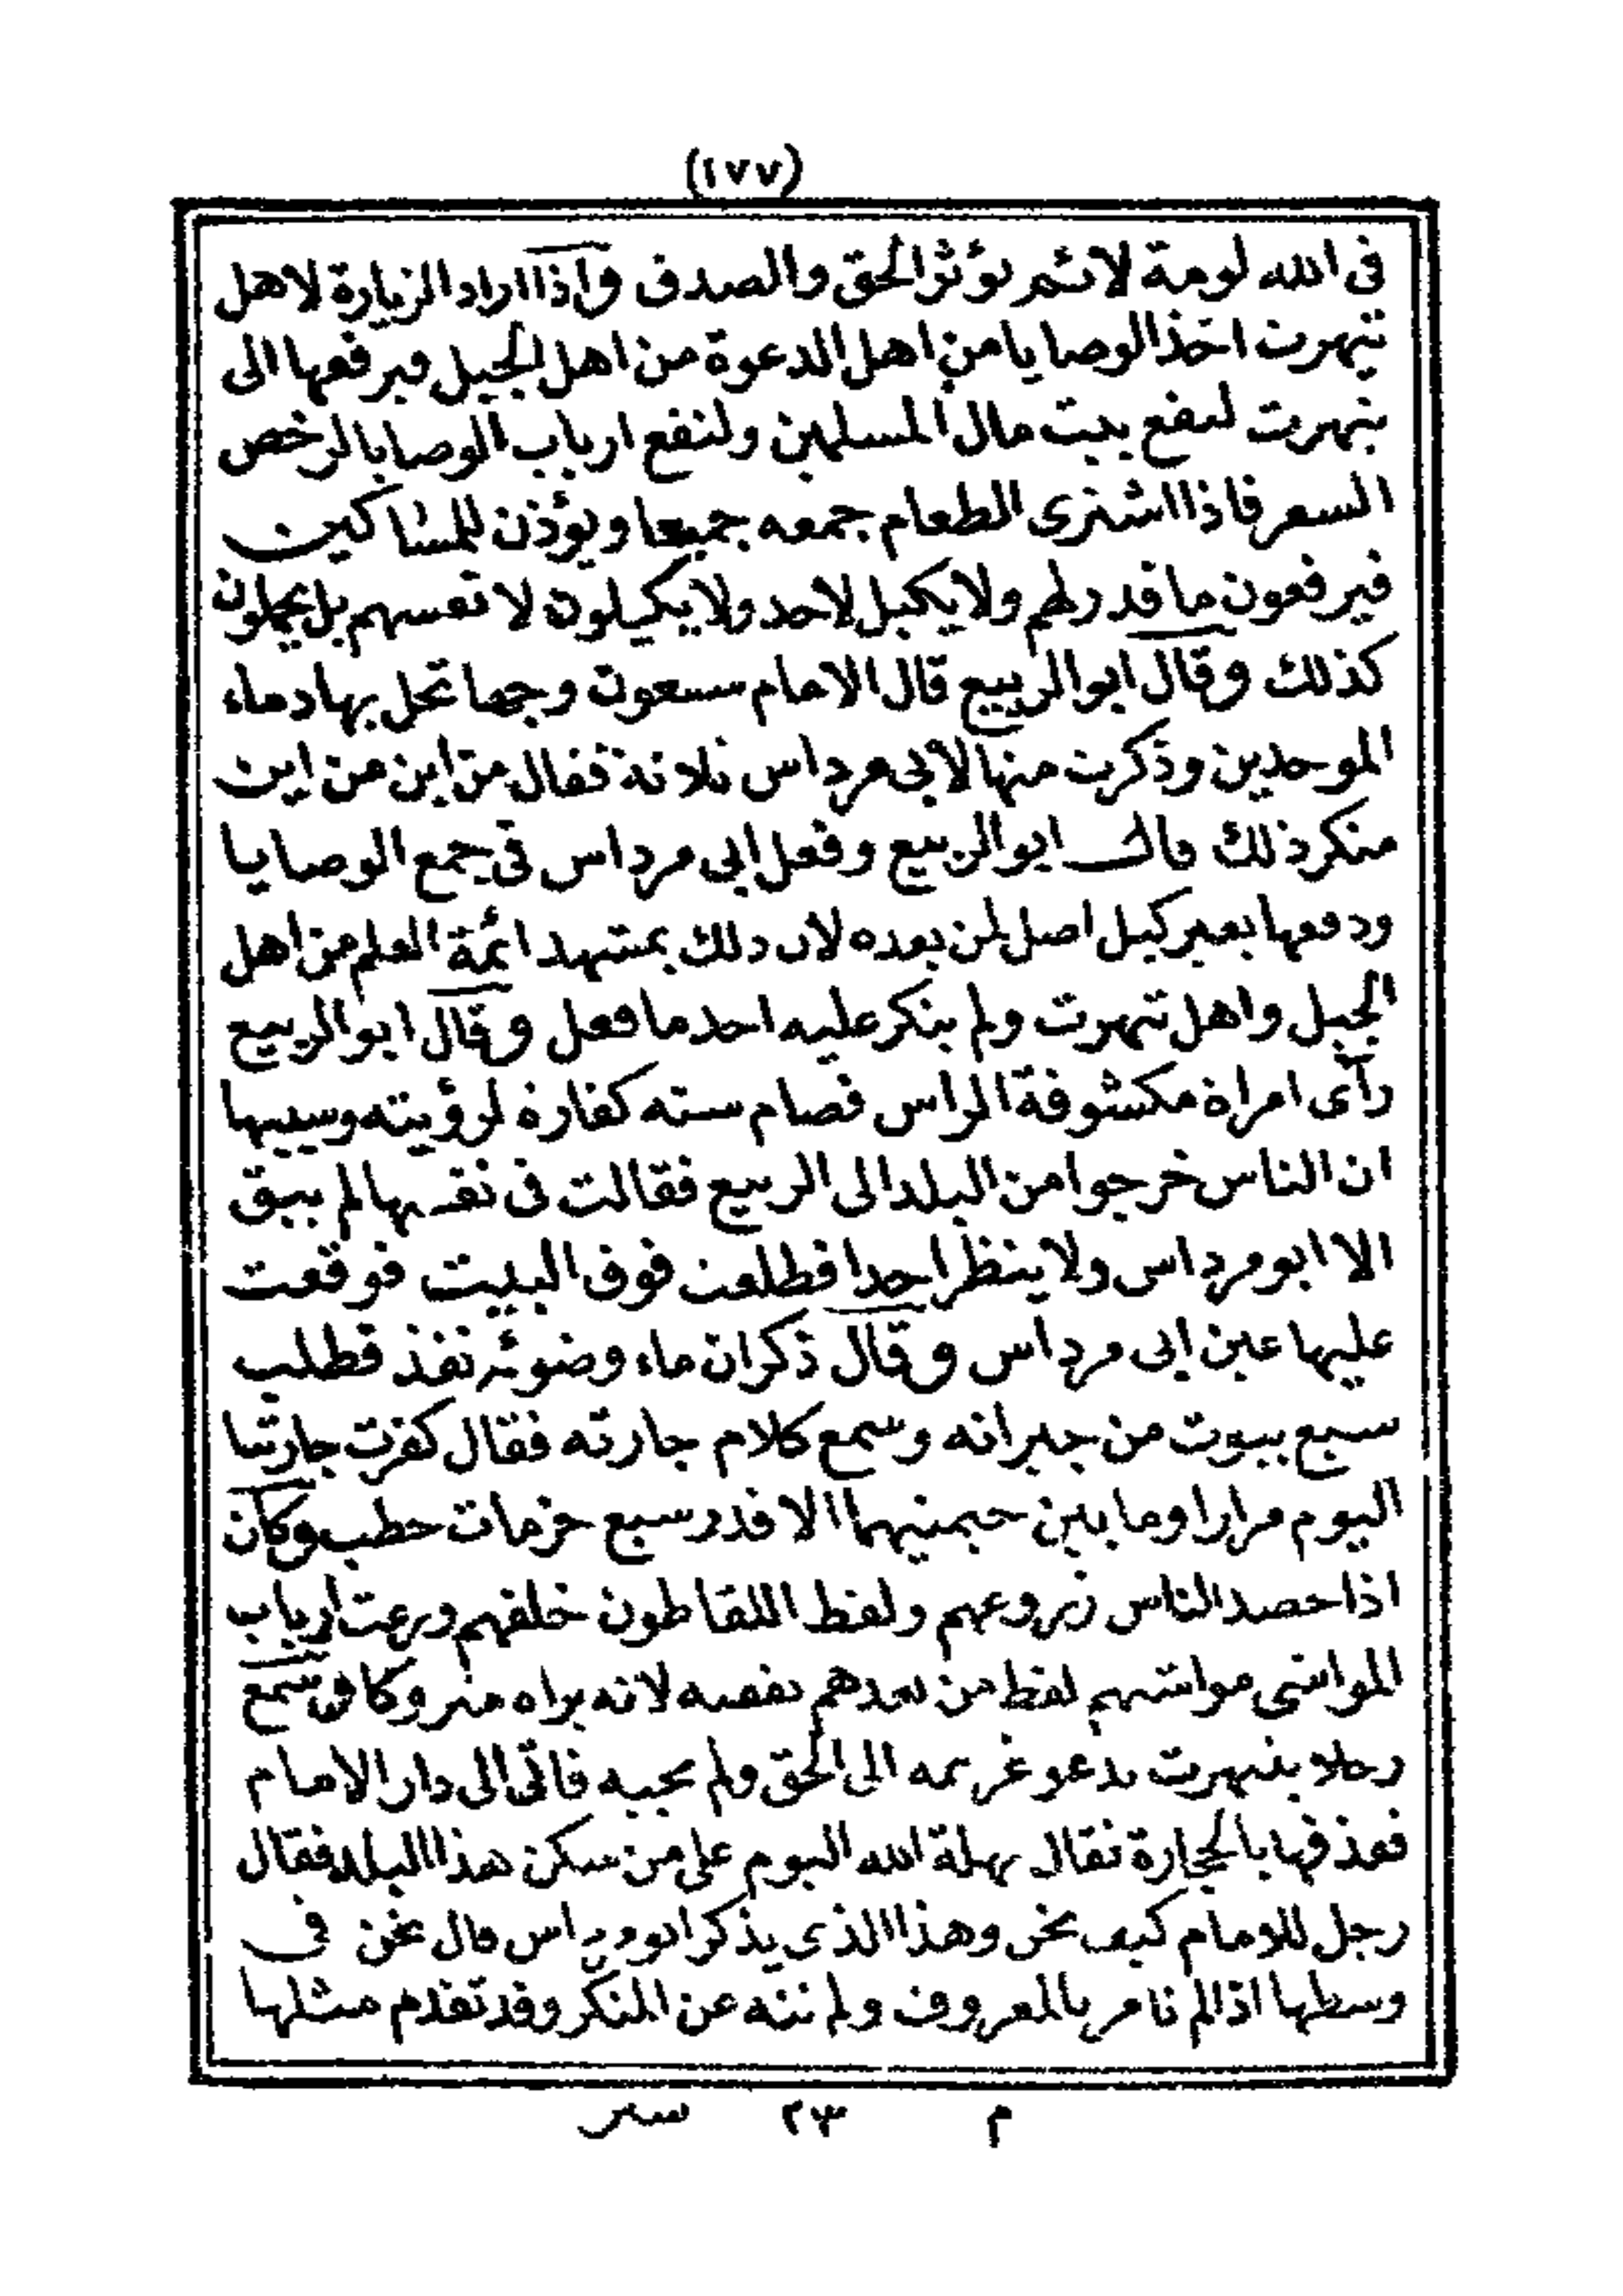 (١٧٧)
فى الله لومة لائم يؤثر الحق والصدق واذا اراد الزيارة لاهل
تيهرت اخذ الوصايا من اهل الدعوة من اهل الجبل فيرفعها الى
تيهرت لنفع بيت مال المسلمين ولنفع ارباب الوصايا لرخص
السعر فاذا اشترى الطعام جمعه جميعا ويؤذن للمساكين
فيرفعون ما قدر لهم ولا يكيل لاحد ولا يكيلون لانفسهم بل يحملون
كذلك وقال ابو الربيع قال الامام سبعون وجها تحل بها دماء
الموحدين وذكرت منها لابى مرداس ثلاثة فقال من اين من اين
منكر ذلك قال ابو الربيع وفعل ابى مرداس فى جمع الوصايا
ودفعها بغير كيل اصل لمن بعده لان ذلك بمشهد ائمة العلم من اهل
الجبل واهل تيهرت ولم ينكر عليه احد ما فعل وقال ابو الربيع
رآى امراة مكشوفة الراس فصام سنه كفارة لرؤيته وسببها
ان الناس خرجوا من البلد الى الربيع فقالت فى نفسها لم يبق
الا ابو مرداس ولا ينظر احدا فطلعت فوق البيت فوقعت
عليها عين ابى مرداس وقال ذكر ان ماء وضوئه نفذ فطلب
سبع بيوت من جيرانه وسمع كلام جارته فقال كفرت جارتنا
اليوم مرارا وما بين خيمتيهما الا قدر سبع حزمات حطب وكان
اذا حصد الناس زروعهم ولقط اللقاطون خلفهم ورعت ارباب
المواشى مواشيهم لقط من بعدهم بنفسه لانه يراه متروكا وسمع
رجلا بتيهرت يدعو غريمه الى الحق ولم يجبه فاتى الى دار الامام
فقذفها بالحجارة فقال بهلة الله اليوم على من سكن هذا البلد فقال
رجل للامام كيف نحن وهذا الذى يذكر ابو مرداس قال نحن فى
وسطها اذا لم نامر بالمعروف ولم ننه عن المنكر وقد تقدم مثلها
م ٢٣ سير